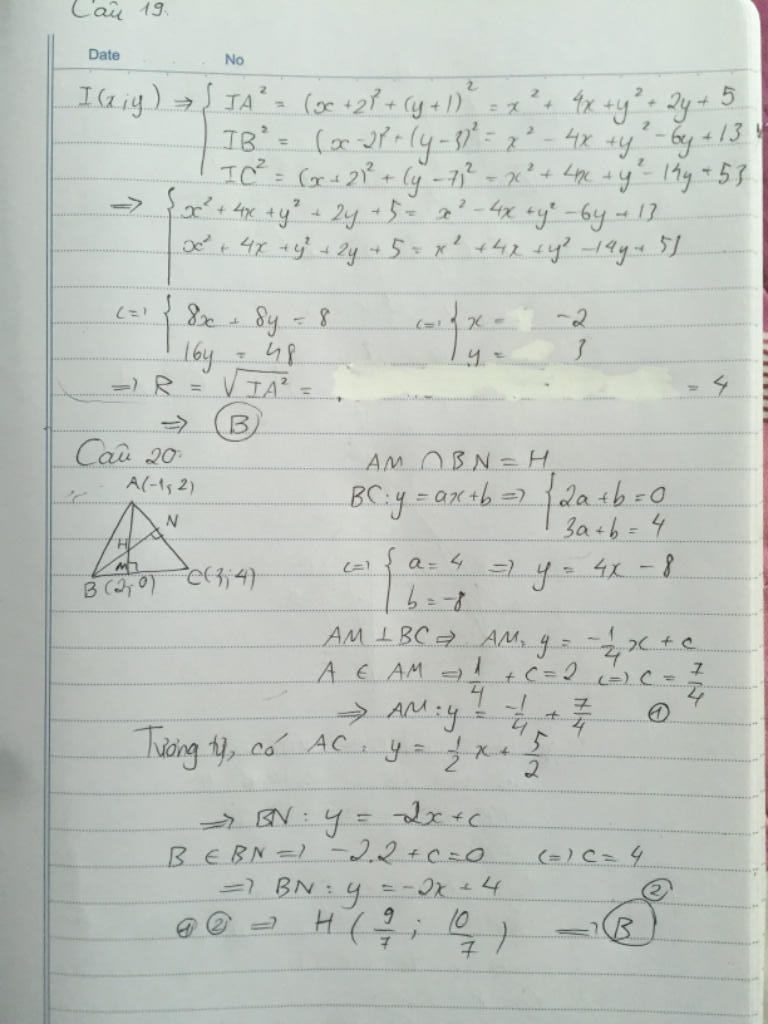 Câu 19.
Date No
I(x;y) => { IA² = (x+2)² + (y+1)² = x² + 4x + y² + 2y + 5
IB² = (x-2)² + (y-3)² = x² - 4x + y² - 6y + 13
IC² = (x+2)² + (y-7)² = x² + 4x + y² - 14y + 53
=> { x² + 4x + y² + 2y + 5 = x² - 4x + y² - 6y + 13
x² + 4x + y² + 2y + 5 = x² + 4x + y² - 14y + 53
<=> { 8x + 8y = 8 <=> { x = -2
16y = 48 y = 3
=> R = √IA² = = 4
=> B
Câu 20:
AM ∩ BN = H
A(-1;2)
BC: y = ax+b => { 2a+b = 0
3a+b = 4
N
H
M
B(2;0) C(3;4)
<=> { a = 4 => y = 4x - 8
b = -8
AM ⊥ BC => AM: y = -1/4 x + c
A ∈ AM => 1/4 + c = 2 <=> c = 7/4
=> AM: y = -1/4 + 7/4 ①
Tương tự, có AC: y = 1/2 x + 5/2
=> BN: y = -2x + c
B ∈ BN => -2.2 + c = 0 <=> c = 4
=> BN: y = -2x + 4 ②
① ② => H (9/7; 10/7) => B